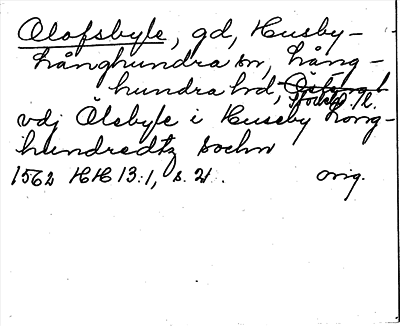 Olofsbyle, gd, Husby-
långhundra sn, Lång-
hundra hd, Östergl
Stockh. l.
vdj Ölsbyle i Huseby Long-
hundredtz sochn
1562 HH 13:1, s. 21. orig.